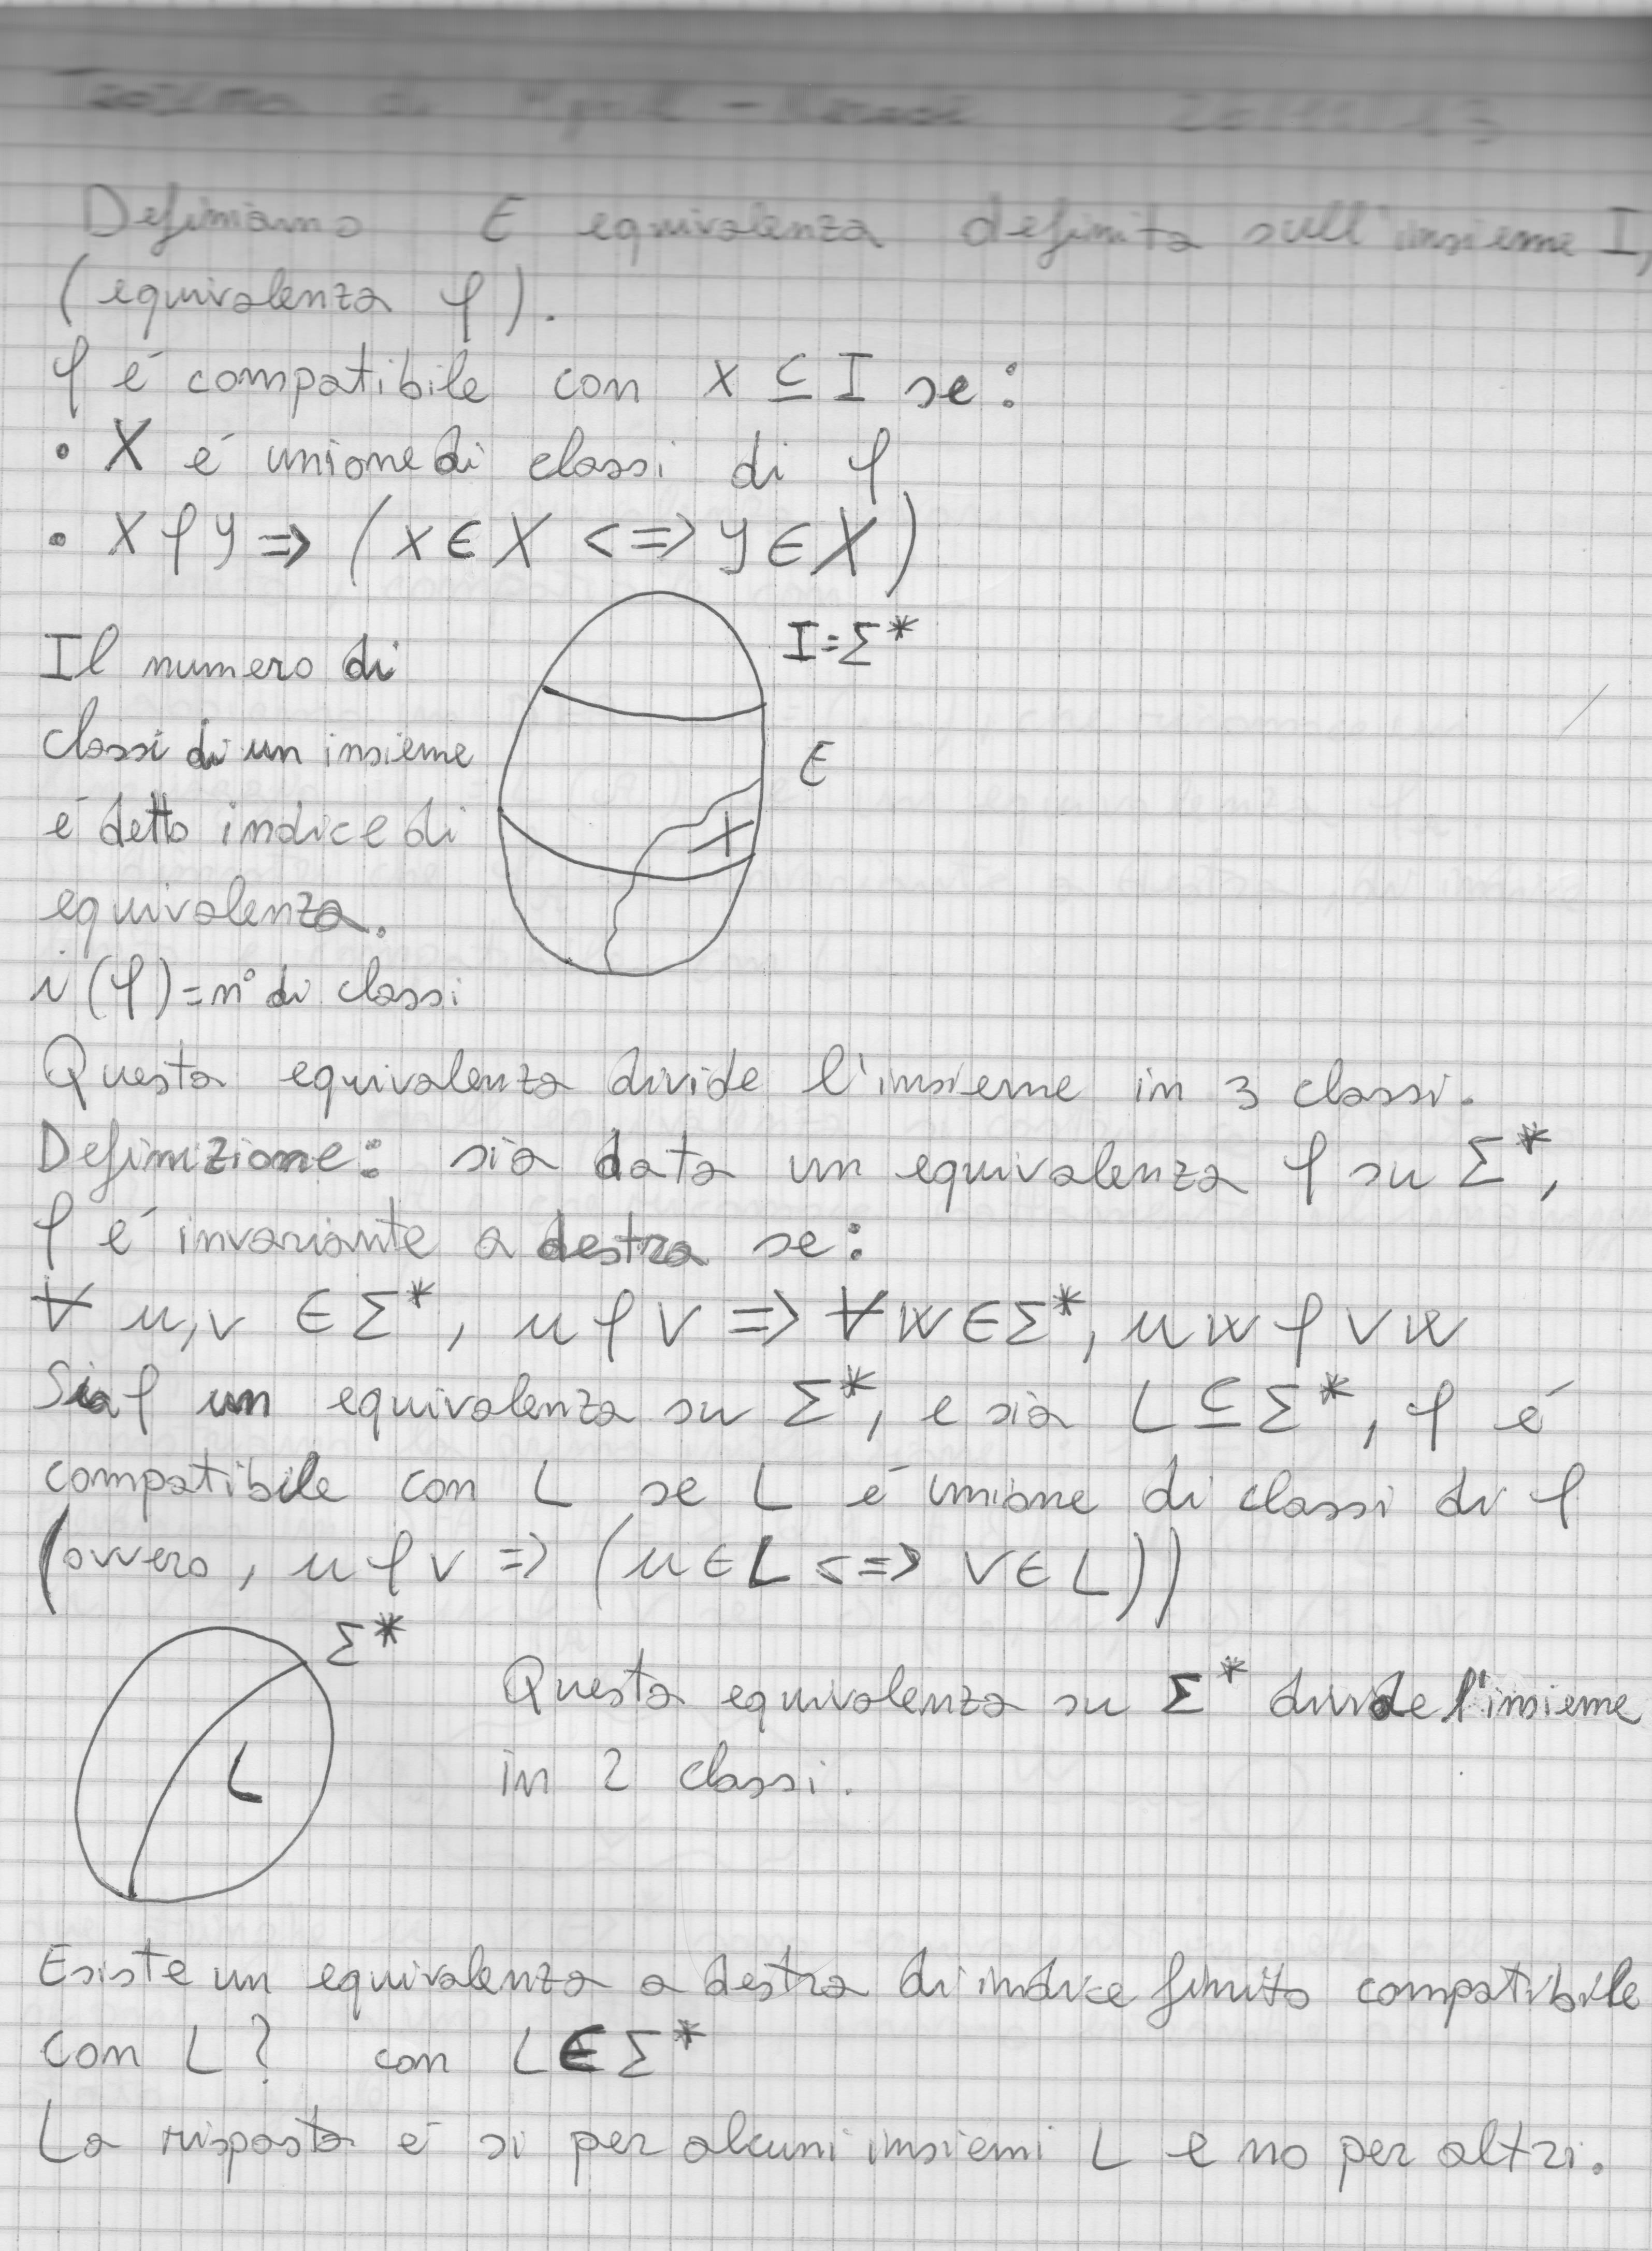 Teorema di Myhill - Nerode
Definiamo E equivalenza definita sull'insieme I,
(equivalenza φ).
φ é compatibile con x ⊆ I se:
• X é unione di classi di φ
• x φ y => (x ∈ X <=> y ∈ X)
I=Σ*
Il numero di
classi di un insieme
é detto indice di
equivalenza.
i(φ)=n° di classi
E
X
Questa equivalenza divide l'insieme in 3 classi.
Definizione: sia data un equivalenza φ su Σ*,
φ é invariante a destra se:
∀ u,v ∈ Σ*, u φ v => ∀w∈Σ*, uw φ vw
Sia φ un equivalenza su Σ*, e sia L⊆Σ*, φ é
compatibile con L se L é unione di classi di φ
(ovvero, u φ v => (u∈L <=> v∈L))
Σ*
L
Questa equivalenza su Σ* divide l'insieme
in 2 classi.
Esiste un equivalenza a destra di indice finito compatibile
con L? con L∈Σ*
La risposta é si per alcuni insiemi L e no per altri.